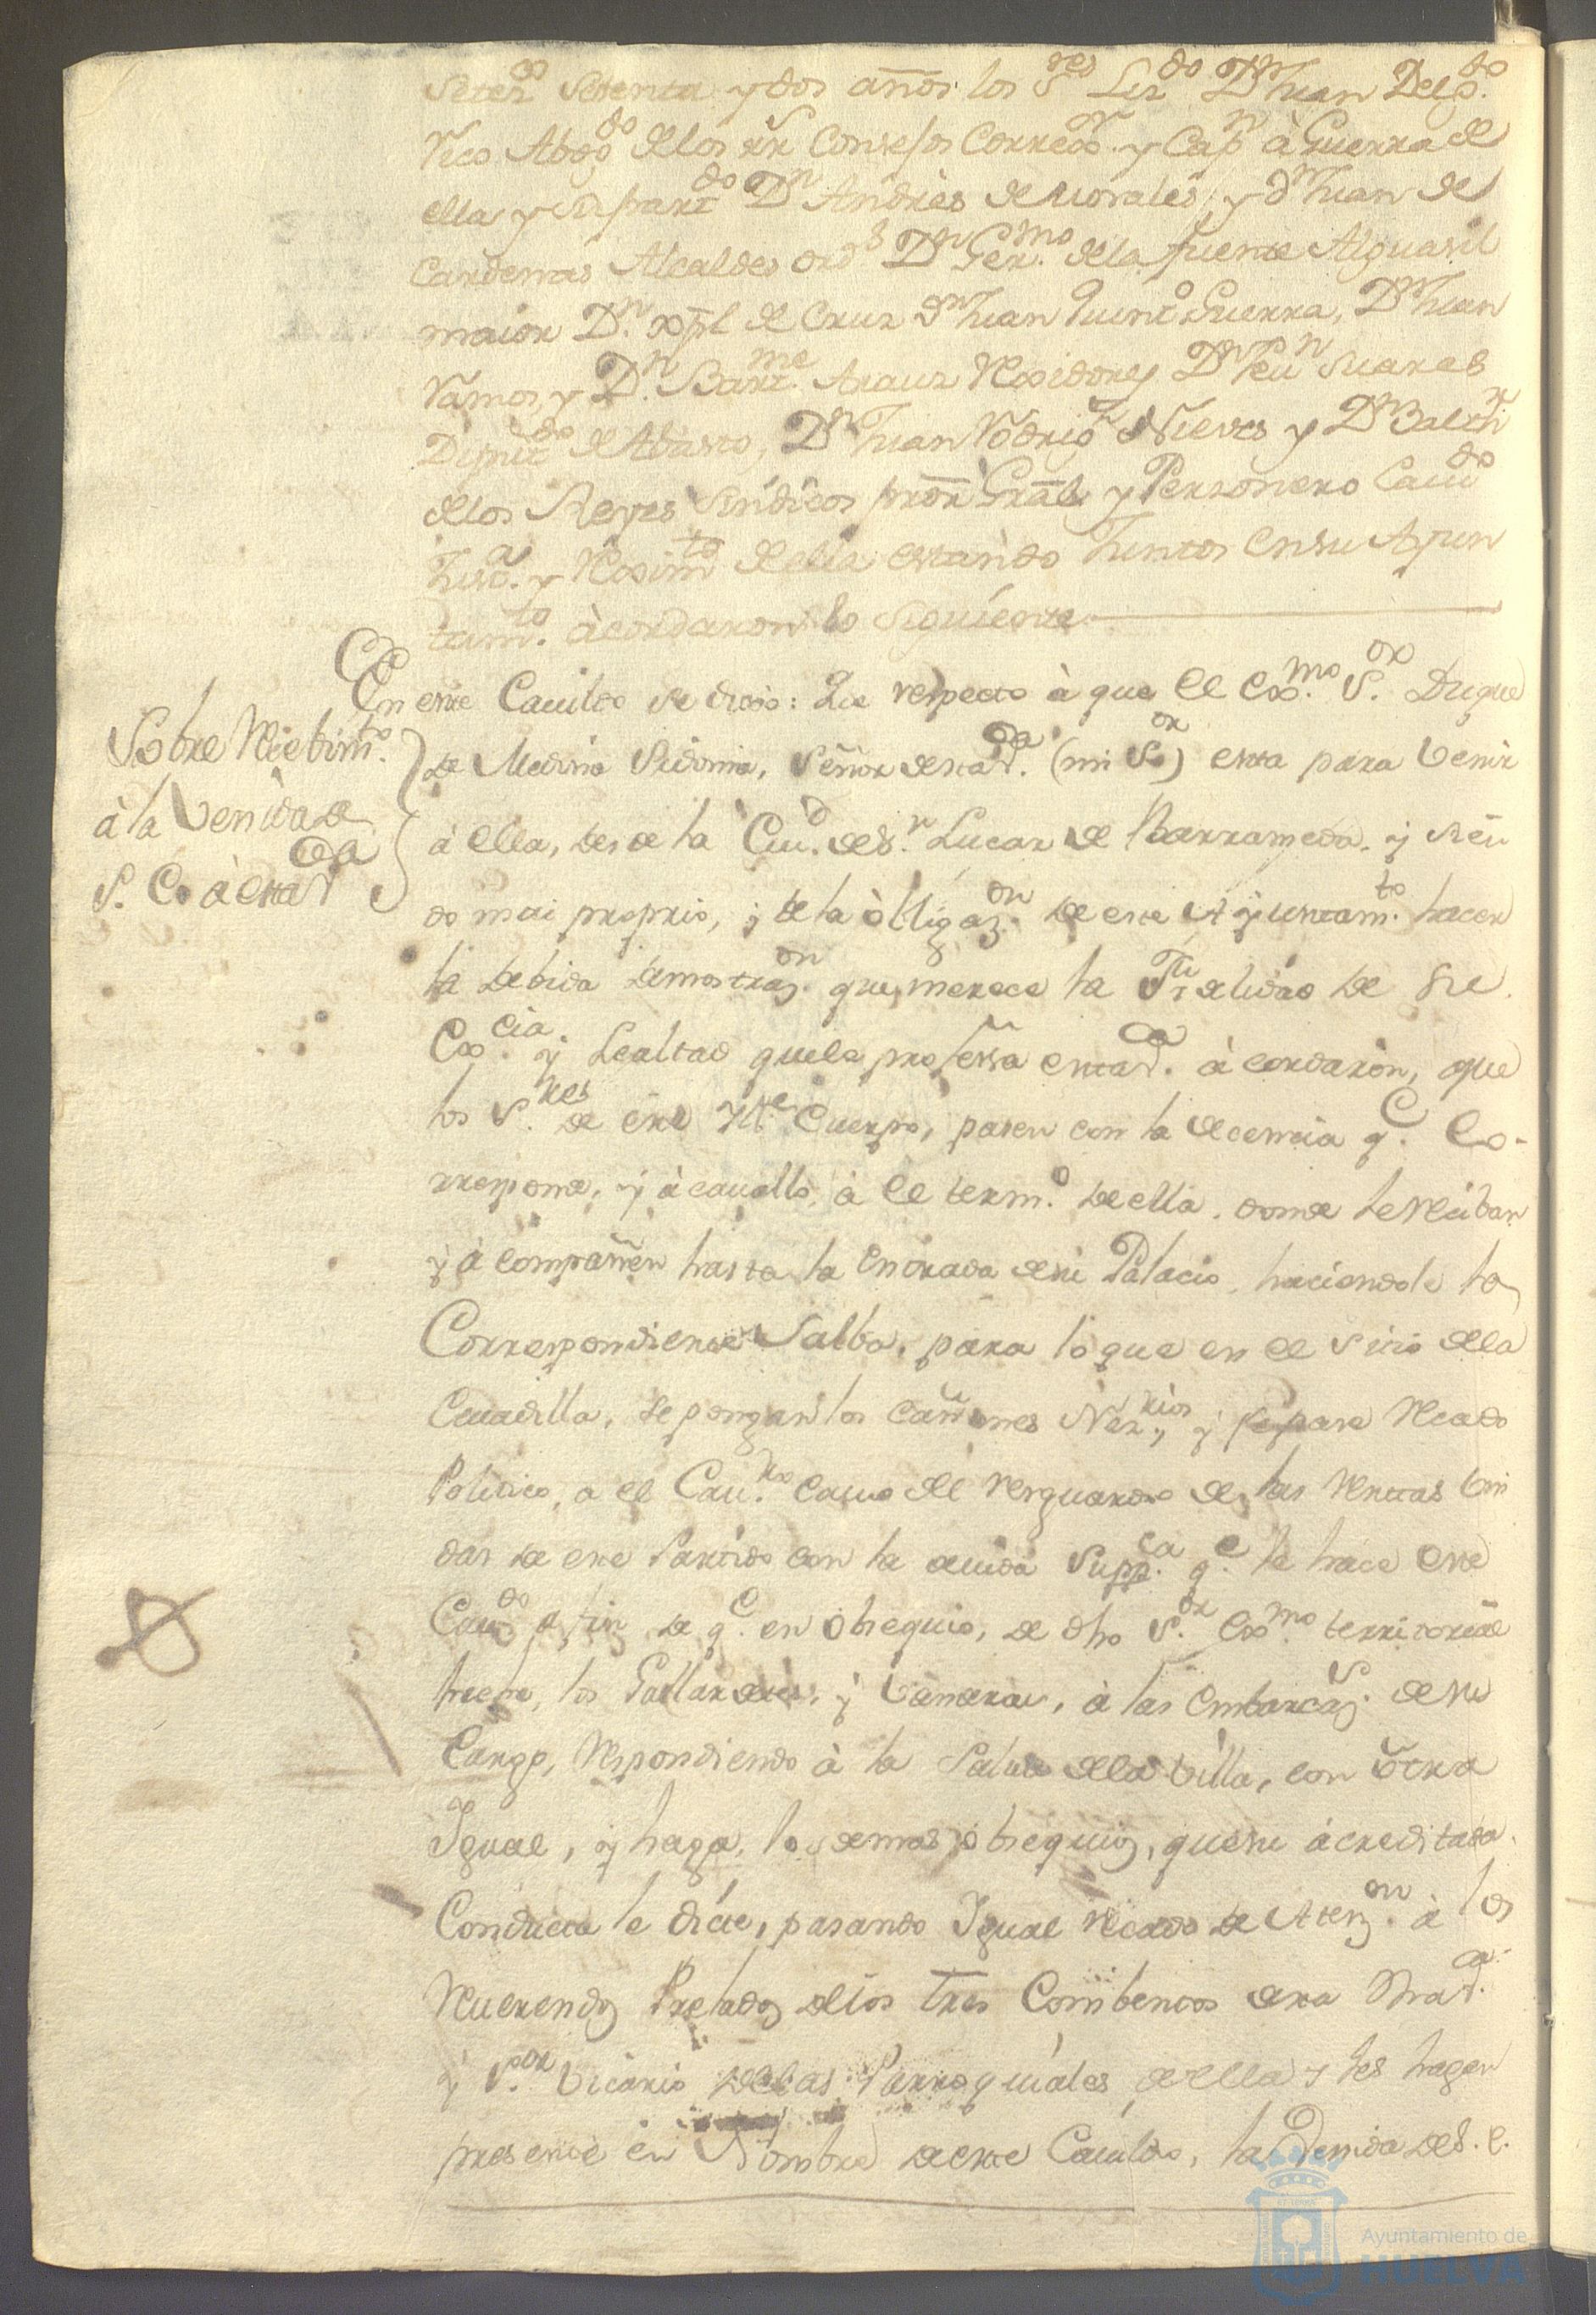 Setez.os setenta y dos años los S.res Liz.do D.n Juan Delg.do
Vico Abog.do de los rr.s Consejos Correx.or y Cap.n à Guerra de
ella y su part.do D.n Andrès de Morales, y d.n Juan de
Cardenas Alcaldes ord.s D.n Ger.mo de la fuente Alguasil
maior D.n xpl de Cruz D.n Juan Quint.o Guerra, D.n Juan
Ramos, y D.n Bart.me Arauz Rexidores D.n Suares
Diput.do de Abasto, D.n Juan Rodrig.z Nieves y D.n
de los Reyes Sindicos pror Gral y Personero Cau.do
Just.a y Rexim.to de ella estando Juntos en su Ayun
tam.to àcordaron lo siguiente
En este Cauildo se dixo: Que respecto à que el Exx.mo S.or Duque
Sobre Recibim.to
à la Venida de
S. Ex.a à esta V.a
de Medina Sidonia, Señor de esta V.a (mi S.or) esta para Venir
à ella, desde la Ciu.d de S.n Lucar de Barrameda, y sien
do mui proprio, y de la òbligaz.on de este Ayuntam.to hacer
la debida demostraz.on que merece la de su
Ex.cia y Lealtad que le professa esta V.a àcordaron, que
los S.res de este Ill.e Cuerpo, pasen con la decencia q.e Co-
rresponde, y àcauallo, à el term.o de ella, donde le reciban
y àcompañen hasta la Entrada de su Palacio, haciendole la
Correspondiente Salba, para lo que en el sitio de la
Cauadilla, se pongan los cañones Nez.rios, y se pase Recado
Politico, a el Cau.do de el resguardo de las Rentas Uni
das de este Partido con la deuida Supp.ca q.e le hace este
Cau.do a fin de q.e en òbsequio, de dho S.or Exx.mo territorial
los Gallardetes, y Vanderas, à las Embarcaz.s de su
Cargo, respondiendo à la Salua de la Villa, con òtra
Igual, y haga, los demas òbsequios, que su àcreditada
Conducta le dicte, pasando Igual recado de Atenz.on à los
Reuerendos Prelados de los tres Combentos de esta V.a
y S.or Vicario de las Parroquiales de ella y les hagan
presente en Nombre de este Cauildo, la Venida de S. E.
Ayuntamiento de
HUELVA